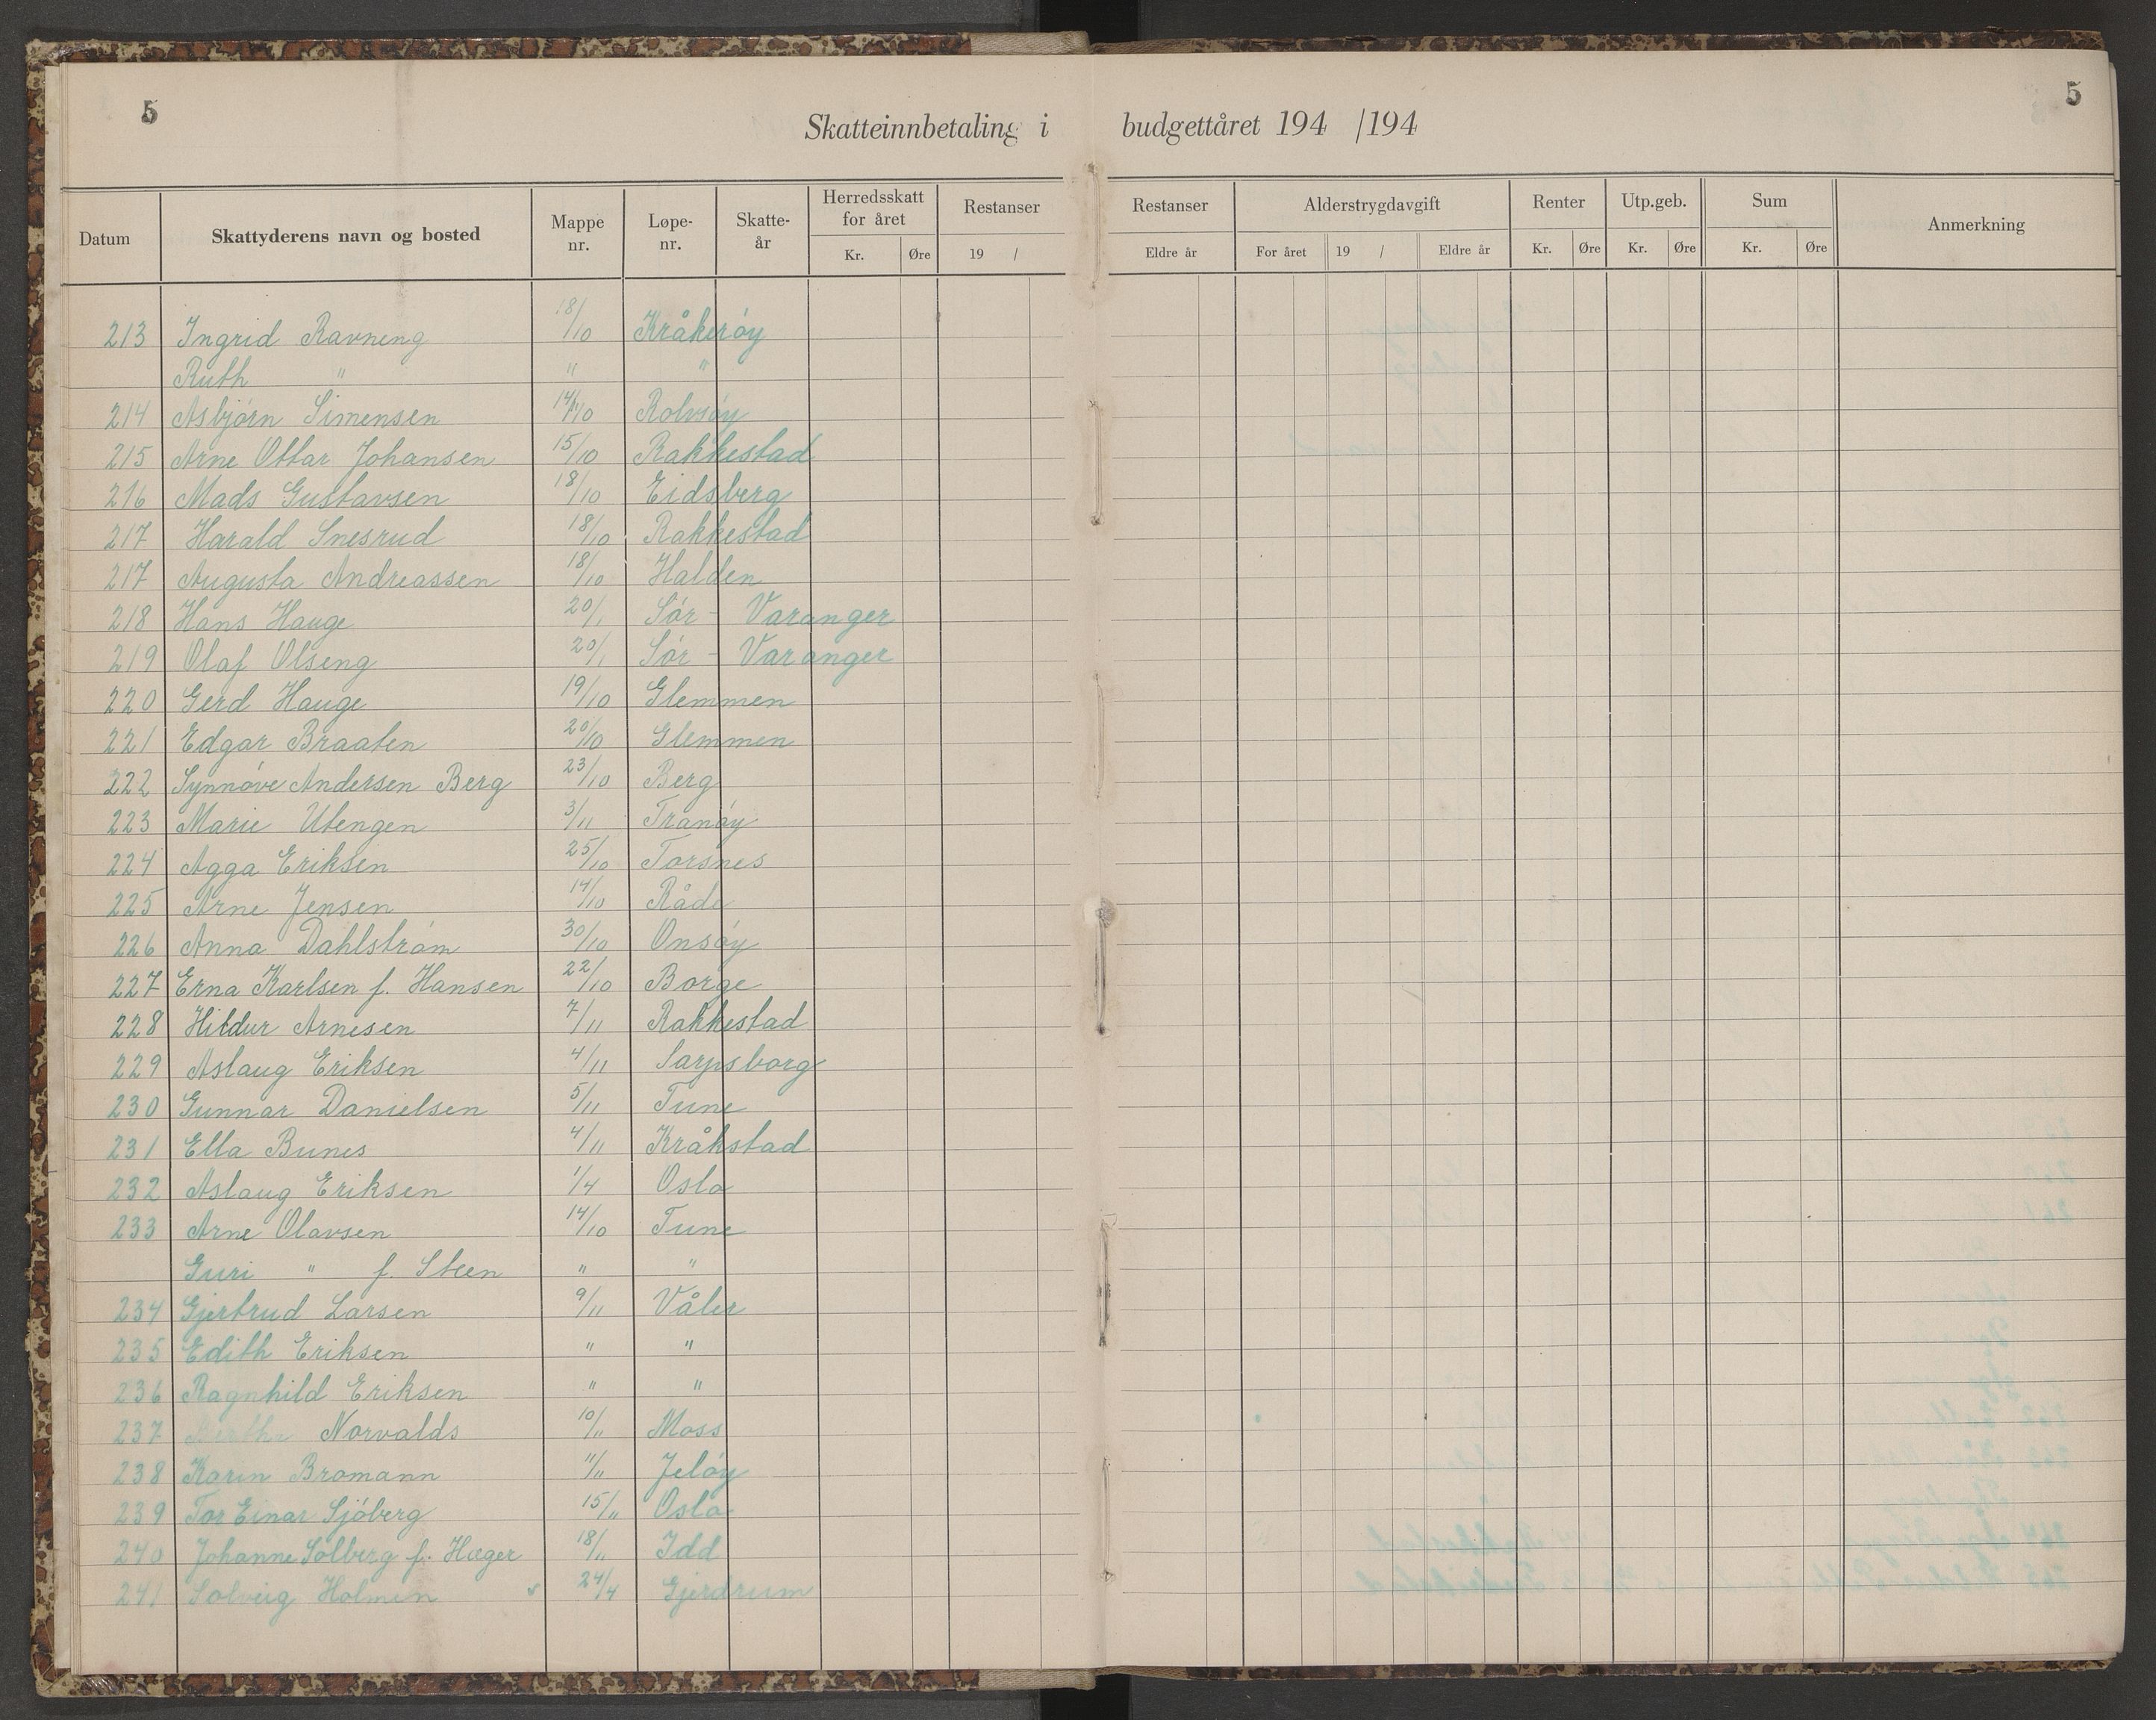 5
5
Skatteinnbetaling i budgettåret 194 /194
Datum Skattyderens navn og bosted Mappe nr. Løpe-nr. Skatte-år Herredsskatt for året Kr. Øre Restanser 19 / Restanser Eldre år Alderstrygdavgift For året 19 / Eldre år Renter Kr. Øre Utp.geb. Kr. Øre Sum Kr. Øre Anmerkning
213 Ingrid Ravneng 18/10 Kråkerøy
Ruth " " "
214 Asbjørn Simensen 14/10 Rolvsøy
215 Arne Ottar Johansen 15/10 Rakkestad
216 Mads Gustavsen 18/10 Eidsberg
217 Harald Snesrud 18/10 Rakkestad
217 Augusta Andreassen 18/10 Halden
218 Hans Hauge 20/1 Sør - Varanger
219 Olaf Olseng 20/1 Sør - Varanger
220 Gerd Hauge 19/10 Glemmen
221 Edgar Braaten 20/10 Glemmen
222 Synnøve Andersen Berg 23/10 Berg
223 Marie Utengen 3/11 Tranøy
224 Agga Eriksen 25/10 Torsnes
225 Arne Jensen 14/10 Råde
226 Anna Dahlstrøm 30/10 Onsøy
227 Erna Karlsen f. Hansen 22/10 Borge
228 Hildur Arnesen 7/11 Rakkestad
229 Aslaug Eriksen 4/11 Sarpsborg
230 Gunnar Danielsen 5/11 Tune
231 Ella Bunes 4/11 Kråkstad
232 Aslaug Eriksen 1/4 Oslo
233 Arne Olavsen 14/10 Tune
Guri " f. Steen " "
234 Gjertrud Larsen 9/11 Våler
235 Edith Eriksen " "
236 Ragnhild Eriksen " "
237 Norvalds 10/11 Moss
238 Karin Bromann 11/11 Jeløy
239 Tor Einar Sjøberg 15/11 Oslo
240 Johanne Solberg f. Hæger 18/11 Idd
241 Solveig Holmen 24/4 Gjerdrum